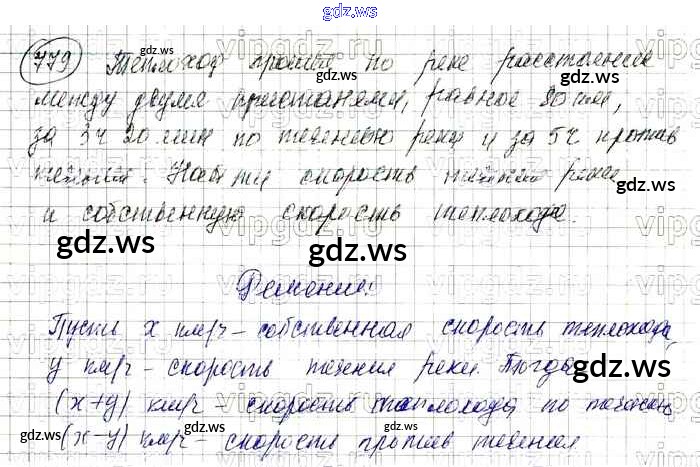 gdz.ws
779 Теплоход прошел по реке расстояние
между двумя пристанями, равное 80 км,
за 3ч 20 мин по течению реки и за 5ч против
течения. Найти скорость течения реки
и собственную скорость теплохода.
gdz.ws gdz.ws
Решение:
Пусть x км/ч - собственная скорость теплохода,
y км/ч - скорость течения реки. Тогда
(x+y) км/ч - скорость теплохода по течению
(x-y) км/ч - скорость против течения